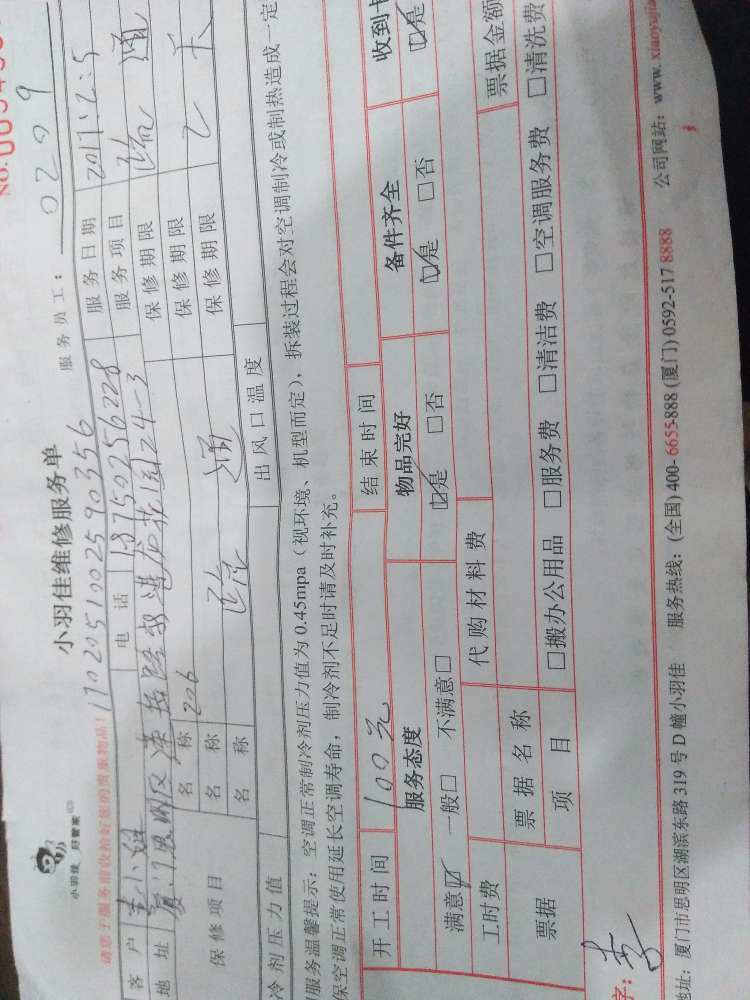 小羽佳 好管家
小羽佳维修服务单
服务员工： 0209
请您于服务前收拾好您的贵重物品！
17020510025 90356
客户 电话 18750256228 服务日期 2017.2.5
地址 厦门思明区 花园24-3 服务项目 疏通
206
保修项目 名称 保修期限
名称 疏通 保修期限 乙天
名称 保修期限
冷剂压力值 出风口温度
服务温馨提示：空调正常制冷剂压力值为 0.45mpa（视环境、机型而定），拆装过程会对空调制冷或制热造成一定
保空调正常使用延长空调寿命，制冷剂不足时请及时补充。
开工时间 结束时间
100元
服务态度 物品完好 备件齐全 收到卡
满意☑ 一般□ 不满意□ ☑是 □否 ☑是 □否 ☑是
工时费 代购材料费
票据 票据名称 票据金额
项目 □搬办公用品 □服务费 □清洁费 □空调服务费 □清洗费
字： 李
地址：厦门市思明区湖滨东路 319 号 D 幢小羽佳 服务热线：(全国) 400-6655-888 (厦门) 0592-517 8888 公司网站：www.xiaoyujia